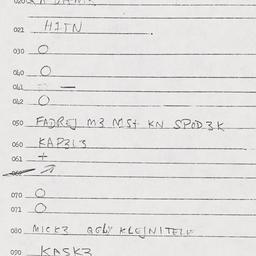 021 HITN
030 O
040 O
041 —
042 O
050 FADREJ M3 MST KN SPOD3K
060 KAP3L3
061 +
070 O
071 O
080 MICK3 KLEJNITELE
090 KASK3